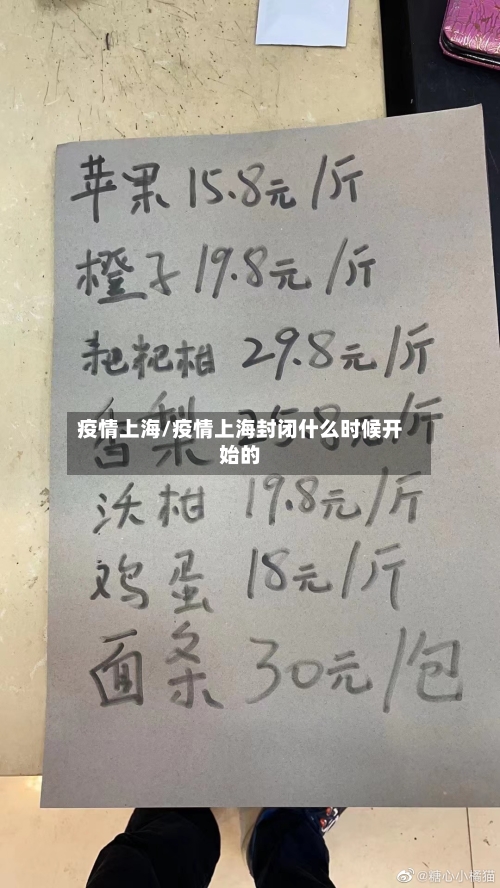 苹果 15.8元/斤
橙子 19.8元/斤
耙粑柑 29.8元/斤
香梨 25.8元/斤
疫情上海/疫情上海封闭什么时候开
始的
沃柑 19.8元/斤
鸡蛋 18元/斤
面条 30元/包
@糖心小橘猫